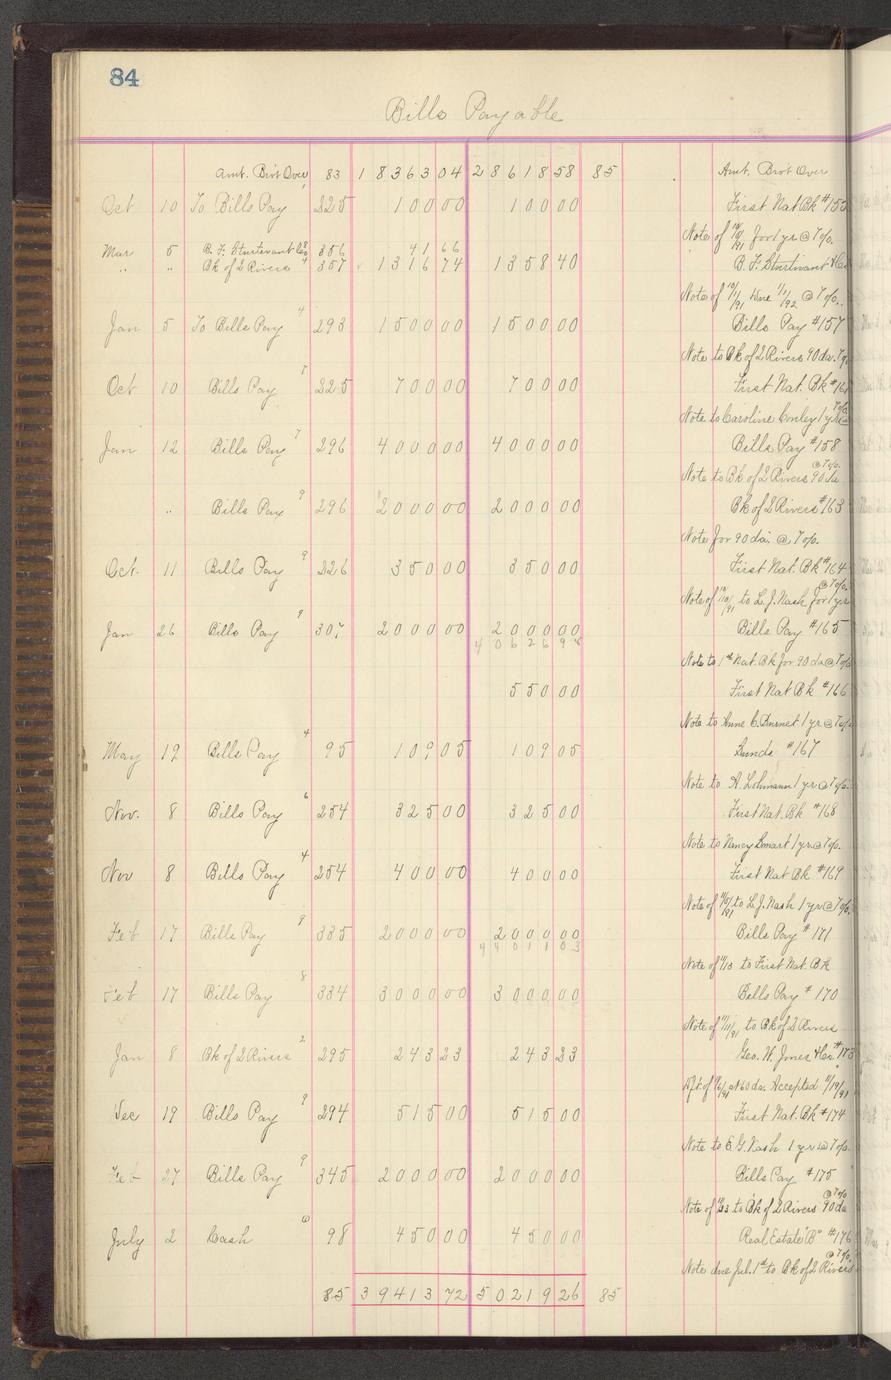 84
Bills Payable
Amt. Bro't Over 83 183630 4 2861858 85 Amt. Bro't Over
Oct 10 To Bills Pay 225 10000 10000 First Nat Bk
Note of for 1 yr @ 7%.
Mar 5 B. F. Sturtevant Co 356 41 66
" " Bk of 2 Rivers 4 357 1316 74 1358 40 B. F. Sturtevant & Co
Note of Due 1/1/92 @ 7%.
Jan 5 To Bills Pay 4 293 1500 00 1500 00 Bills Pay #157
Note to Bk of 2 Rivers 90 da.
Oct 10 Bills Pay 7 225 700 00 700 00 First Nat. Bk
Note to Caroline Conley 1 yr @ 7%.
Jan 12 Bills Pay 7 296 4000 00 4000 00 Bills Pay #158
Note to Bk of 2 Rivers 90 da @ 7%.
" Bills Pay 9 296 2000 00 2000 00 Bk of 2 Rivers #163
Note for 90 da. @ 7%.
Oct. 11 Bills Pay 9 226 350 00 350 00 First Nat. Bk #164
Note of to L. J. Nash for 1 yr @ 7%.
Jan 26 Bills Pay 9 307 2000 00 2000 00 Bills Pay #165
406269
Note to 1st Nat. Bk for 90 da @ 7%
550 00 First Nat Bk #166
Note to Anne C. Burnet 1 yr @ 7%
May 19 Bills Pay 4 95 109 05 109 05 Sunds #167
Note to A. Lohmann 1 yr @ 7%.
Nov. 8 Bills Pay 6 254 325 00 325 00 First Nat. Bk #168
Note to Nancy Smart 1 yr @ 7%.
Nov 8 Bills Pay 4 254 400 00 400 00 First Nat Bk #169
Note of to L. J. Nash 1 yr @ 7%.
Feb 17 Bills Pay 9 335 2000 00 2000 00 Bills Pay # 171
4401103
Note of 11/13 to First Nat. Bk
Feb 17 Bills Pay 8 334 3000 00 3000 00 Bills Pay # 170
Note of 11/11/91 to Bk of 2 Rivers
Jan 8 Bk of 2 Rivers 2 295 243 23 243 23 Geo. W. Jones & Co. #173
Dft. of at 60 da. Accepted 11/19/91
Dec 19 Bills Pay 9 294 515 00 515 00 First Nat. Bk #174
Note to E. G. Nash 1 yr @ 7%.
Feb 27 Bills Pay 9 345 2000 00 2000 00 Bills Pay #175
Note of to Bk of 2 Rivers 90 da @ 7%
July 2 Cash 98 450 00 450 00 Real Estate "B" #176
Note due Jul. 1st to Bk of 2 Rivers @ 7%.
85 39413 72 50219 26 85